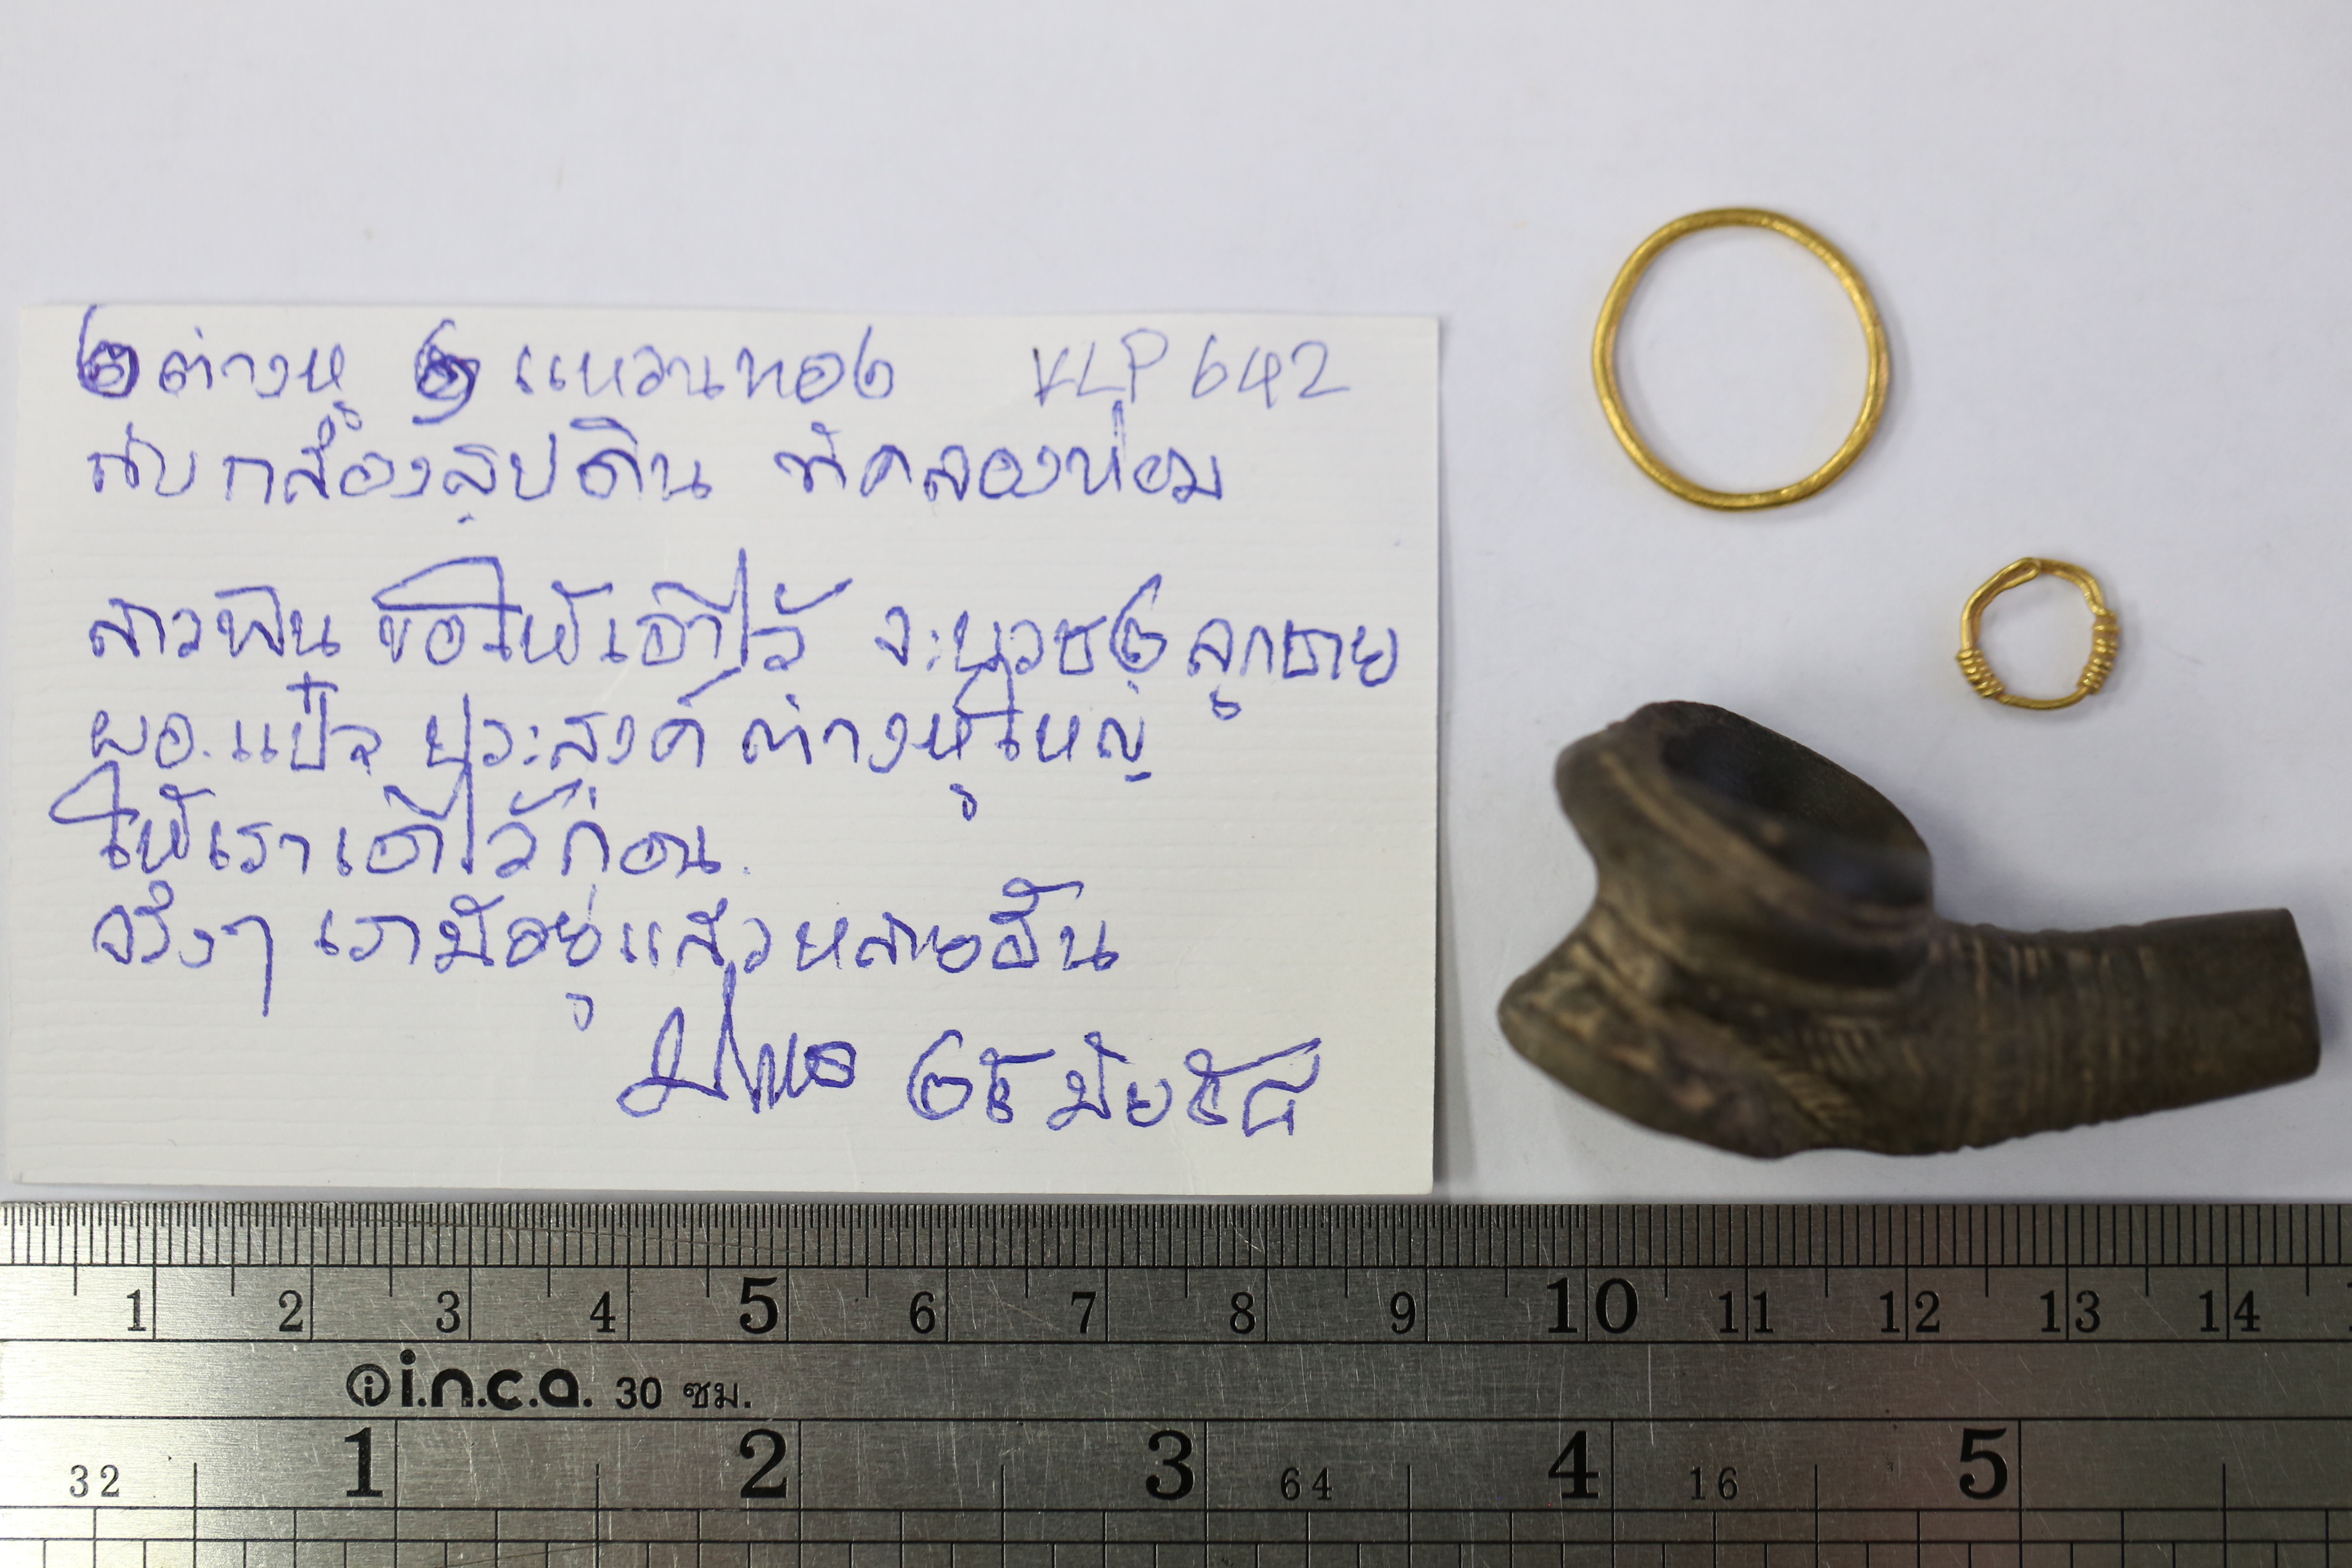 ๑ ต่างหู ๑ แหวนทอง KLP 642
กับกล้องสูบดิน ที่คลองท่อม
สาวพิน ขอให้เอาไว้ จะบวช ลูกชาย
ผอ. แป๋ว ประสงค์ ต่างหูใหญ่
ให้เราเอาไว้ก่อน.
จริงๆ เรามีอยู่แล้วหลายอัน
1 2 3 4 5 6 7 8 9 10 11 12 13 14
i.n.c.a. 30 ซม.
1 2 3 4 5
32 64 16